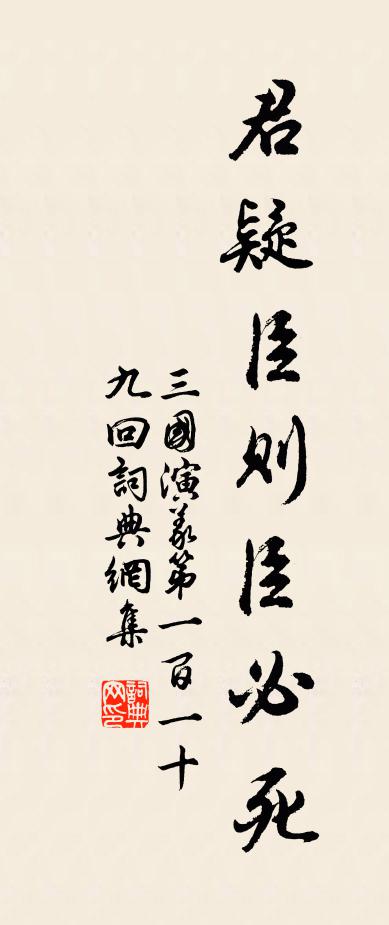 君疑臣则臣必死
三國演義第一百一十
九回詞典網集
詞典
网印